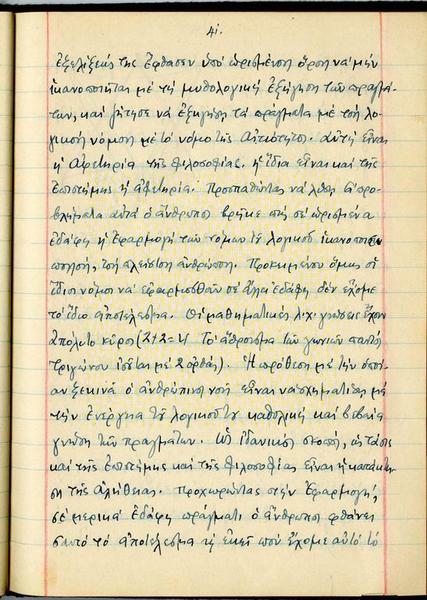 41.
ἐξελίξεώς της ἔφθασεν ὑπό ὡρισμένη ὄρση να μήν
ἱκανοποιῆται μέ τή μυθολογική ἐξήγηση τῶν πραγμά-
των, καί ζήτησε νά ἐξηγήση τά πράγματα μέ τή λο-
γική νόηση μέ τό νόμο τῆς Αἰτιότητος. αὐτή εἶναι
ἡ ἀφετηρία τῆς φιλοσοφίας. ἡ ἴδια εἶναι καί τῆς
ἐπιστήμης ἡ ἀφετηρία. Προσπαθῶντας νά λύση τά προ-
βλήματα αὐτά ὁ ἄνθρωπος βρῆκε πώς σέ ὡρισμένα
ἐδάφη ἡ ἐφαρμογή τῶν νόμων τοῦ λογικοῦ ἱκανοποιεῖ
τή ἀνθρώπιση. Προκειμένου ὅμως οἱ
ἴδιοι νόμοι νά ἐφαρμοσθοῦν σέ ἄλλα ἐδάφη δέν ἔχομε
τό ἴδιο ἀποτέλεσμα. Οἱ μαθηματικές λ.χ. γνώσεις ἔχουν
ἀπόλυτο κῦρος (2+2=4 Τό ἄθροισμα τῶν γωνιῶν παντός
τριγώνου ἰσοῦται μέ 2 ὀρθάς). Ἡ πρόθεση μέ τήν ὁποί-
αν ξεκινά ὁ ἀνθρώπινος νοῦς εἶναι νά σχηματίση μέ
τήν ἐνέργεια τοῦ λογικοῦ του καθολική καί βεβαία
γνώση τῶν πραγμάτων. Ὡς ἰδανικός σκοπός, ὡς τάσις
καί τῆς ἐπιστήμης καί τῆς φιλοσοφίας εἶναι ἡ κατάκτη-
ση τῆς ἀλήθειας. Προχωρώντας στήν ἐφαρμογή,
σέ μερικά ἐδάφη πράγματι ὁ ἄνθρωπος φθάνει
σ'αὐτό τό ἀποτέλεσμα ἐκεῖ πού ἔχομε αὐτό τό